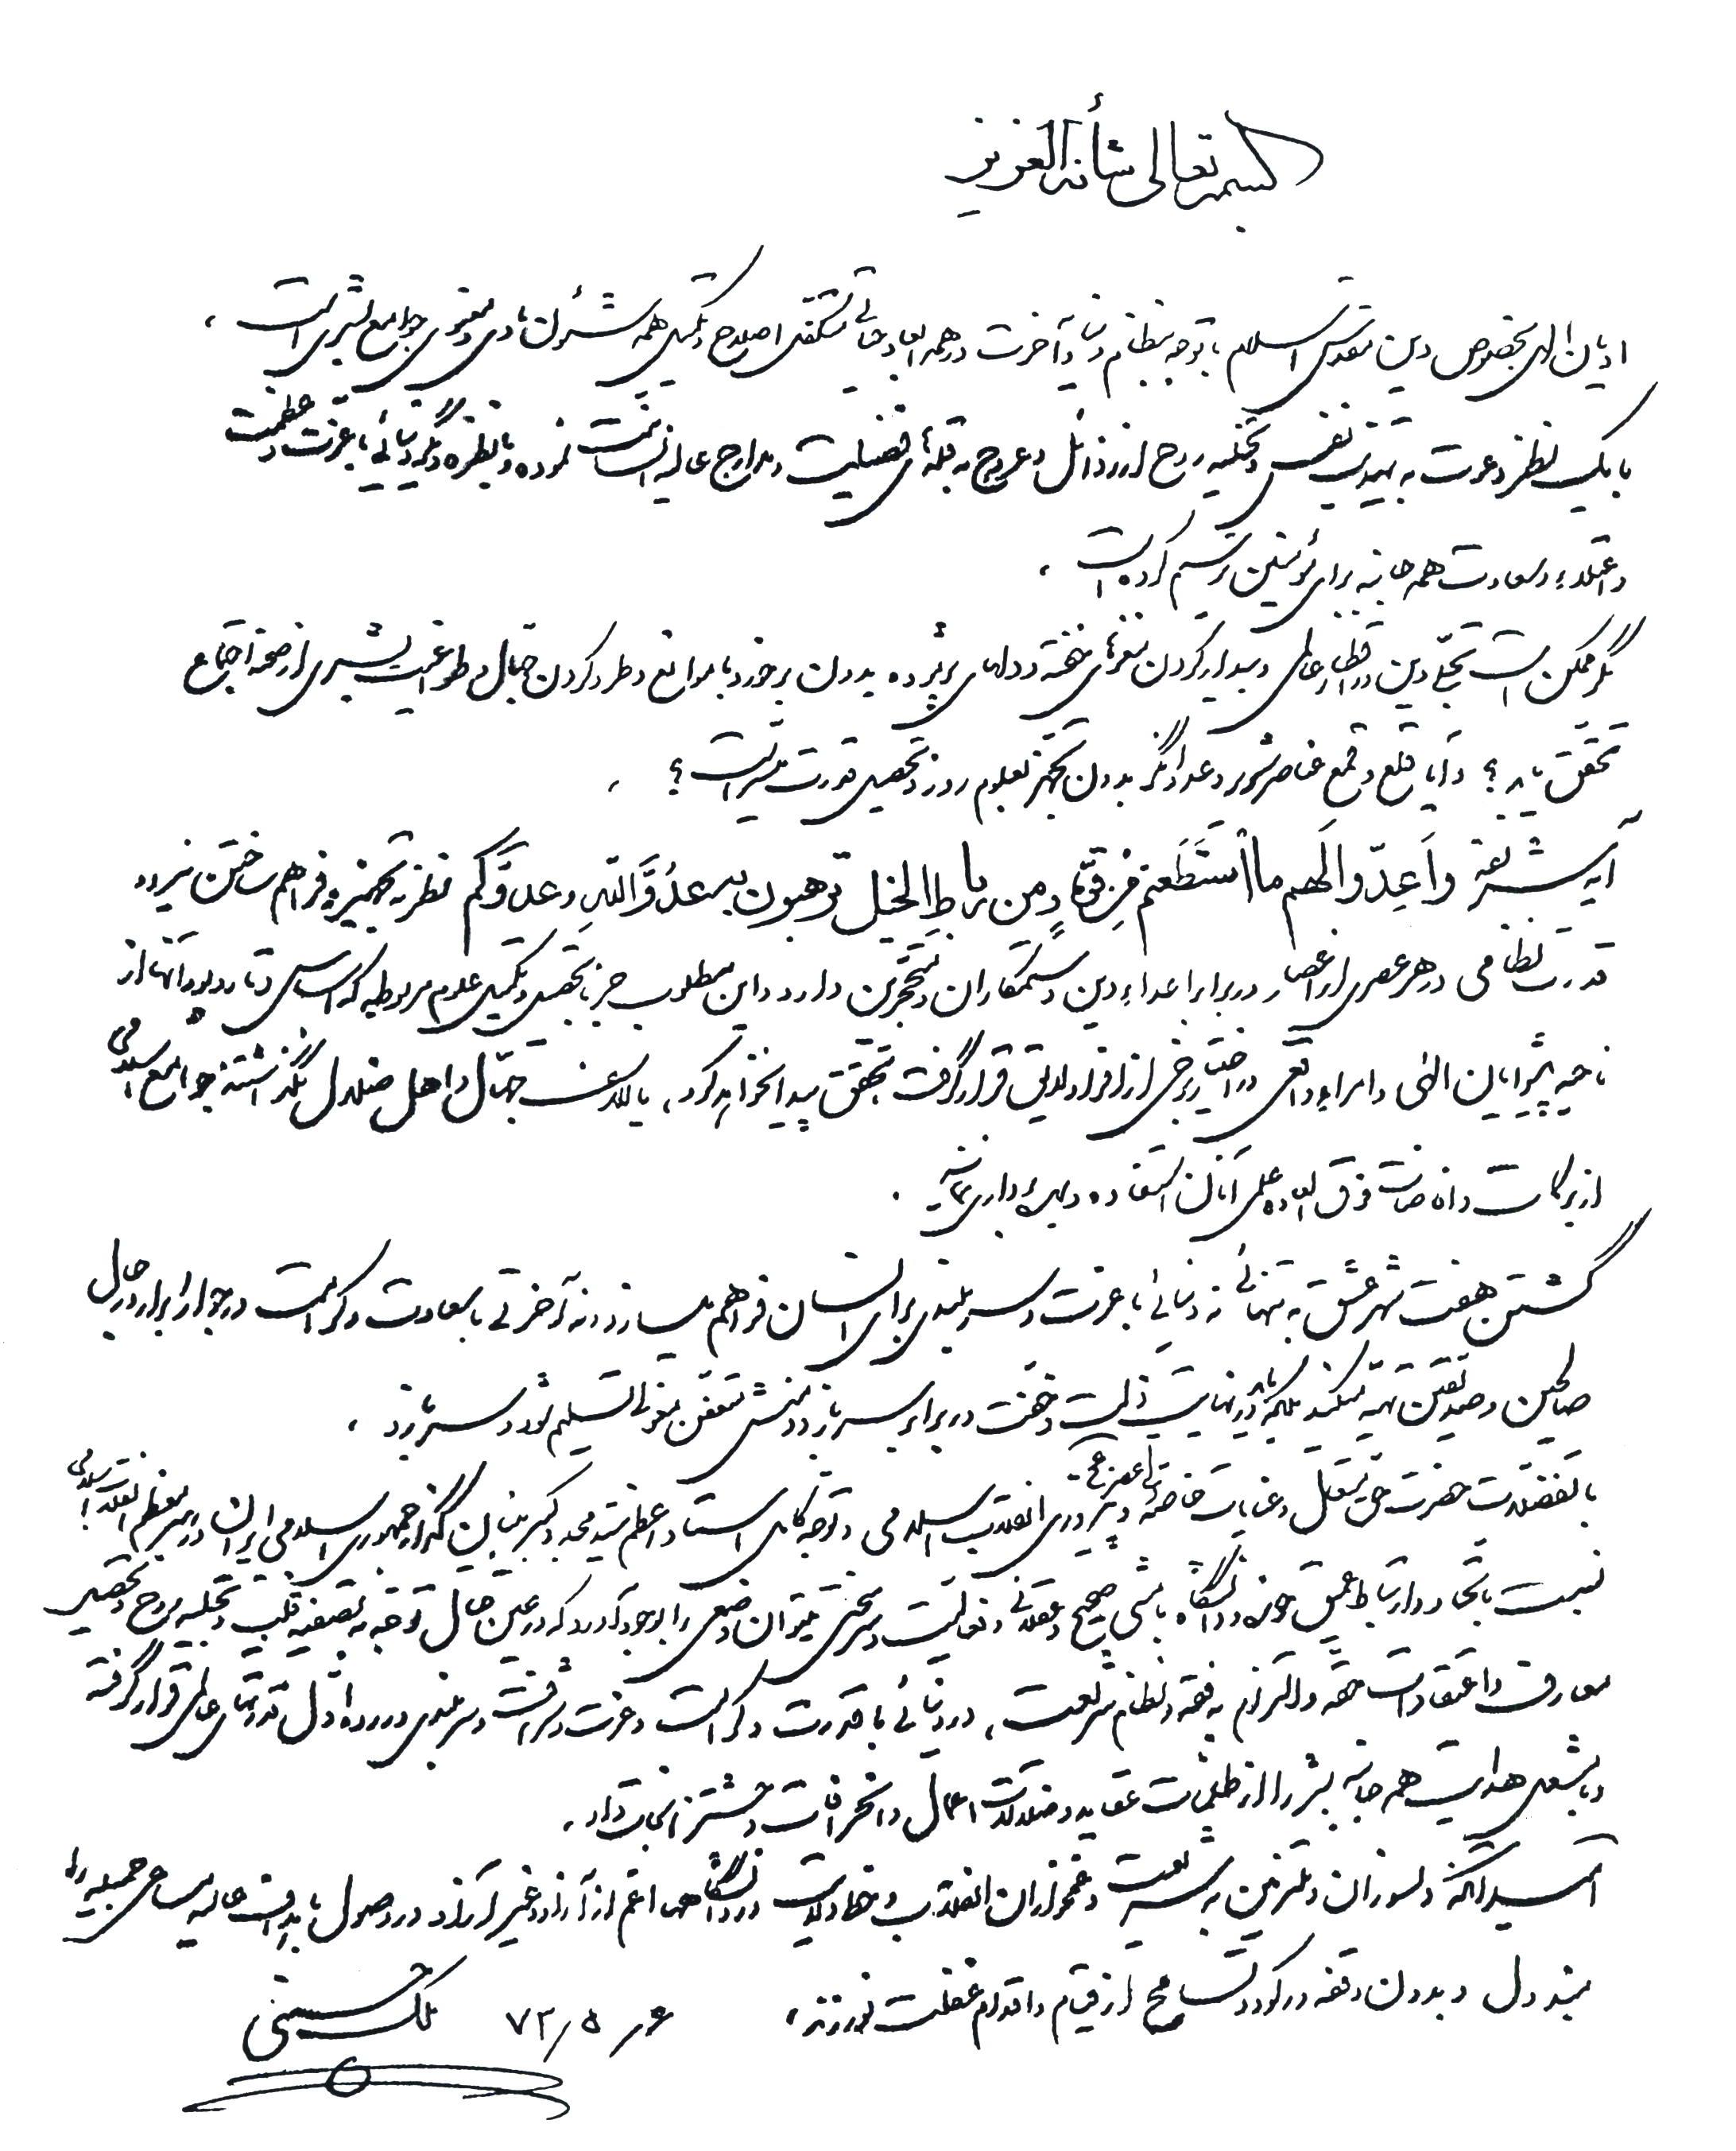 بسمه تعالی شأنه العزیز
ادیان الهی بخصوص دین مقدس اسلام با توجه بنظام دنیا و آخرت در همه ابعاد حیاتی متکفل اصلاح و تکمیل همه شئون مادی و معنوی جوامع بشری است ،
با یک نظر دعوت به تهذیب نفس و تخلیه روح از رذائل و عروج به قله‌های فضیلت و مدارج عالیه انسانیت نموده و با نظره دیگر دنیائی با عزت و عظمت
و اعتلاء و سعادت همه جانبه برای مؤمنین ترسیم کرده است ،
مگر ممکن است تجلی دین در اقطار عالم و بیدار کردن مغزهای خفته و دلهای پژمرده بدون برخورد با موانع و طرد کردن جهال و طواغیت بشری از صحنه اجتماع
تحقق یابد ؟ و آیا قلع و قمع عناصر شرور و غدار مگر بدون تجهیز بعلوم روز و تحصیل قدرت میسر است ؟ ،
آیه شریفه وَأَعِدّوا لَهم ما اسْتَطَعتم مِن قوّة و من رباط الخیل ترهبون به عدُوَّ اللهِ و عدوَّکم نظر به تجهیز و فراهم ساختن نیرو و
قدرت نظامی در هر عصری از اعصار در برابر اعداء دین و ستمکاران و متحجرین دارد و این مطلوب جز با تحصیل و تکمیل علوم مربوطه که اساس و تار و پود آنها از
ناحیه پیشوایان الهی و امراء واقعی در اختیار برخی از افراد لایق قرار گرفت تحقق پیدا نخواهد کرد ، با للأسف جهّال و اهل ضلال نگذاشتند جوامع اسلامی
از برکات و افاضات فوق العاده علمی آنان استفاده و بهره برداری نمایند .
گشتن هفت شهر عشق به تنهائی نه دنیائی با عزت و سربلندی برای انسان فراهم میسازد و نه آخرتی با سعادت و کرامت در جوار ابرار و رجال
صالحین و صدیقین تهیه میکند بلکه باید در نهایت ذلت و خفت در برابر سرباز و منش متعفن مغربی تسلیم بود و سر باز زد ،
با تفضلات حضرت حق متعال و عنایات خاصه ولی عصر عج و پیروزی انقلاب اسلامی و توجه کامل استاد اعظم سید مجد و کبیر بنیان گذار جمهوری اسلامی ایران و رهبر معظم انقلاب اسلامی
نسبت باتحاد و ارتباط عمیق حوزه و دانشگاه با مشی صحیح و عقلائی و فعالیت و سرسختی میتوان وضعی را بوجود آورد که در عین حال توجه به تصفیه قلب و تجلیه روح و تحصیل
معارف و اعتقادات حقه و التزام به فقه و نظام شریعت ، در دنیائی با قدرت و کرامت و عزت و شرافت و سربلندی در رده اول قدرتهای عالم قرار گرفته
و با مشعل هدایت همه جانبه بشر را از ظلمات عقاید و ضلالت اعمال و انحرافات و حشتزا نجات داد ،
امید آنکه دلسوزان و ملتزمین به شریعت و غمخواران انقلاب و خط ولایت در دانشگاهها اعم از آزاد و غیر آزاد در وصول باهداف عالیه مساعی جمیله را
مبذول و بدون وقفه و رکود و تسامح از قیام و اقدام غفلت نورزند ،
۶ ر ۵ / ۷۲ ملک حسینی